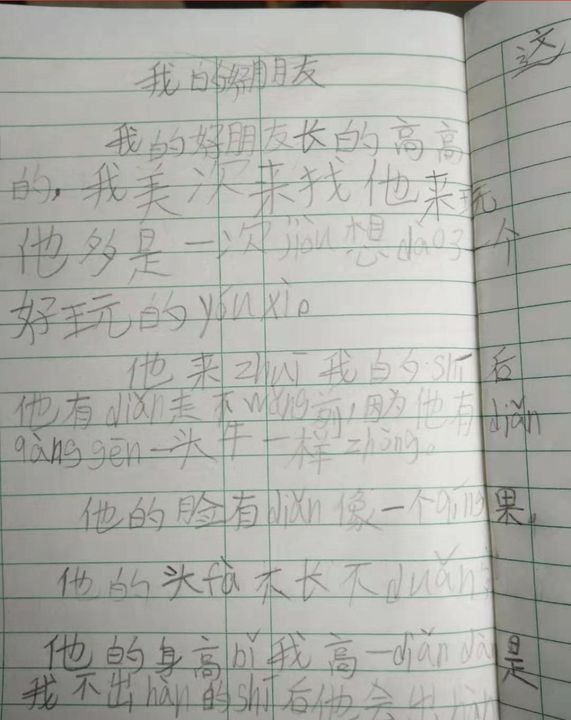 我的好朋友
我的好朋友长的高高
的，我美次来找他来玩
他多是一次jiòu想dào了一个
好玩的yóuxì。
他来zhuī我的shí后
他有diǎn走不
因为他有diǎn
gēn一头牛一样zhòng。
他的脸有diǎn像一个qíng果。
他的头fà不长不duǎn
他的身高bǐ我高一diǎn
是
我不出hàn的shí后他会出
这